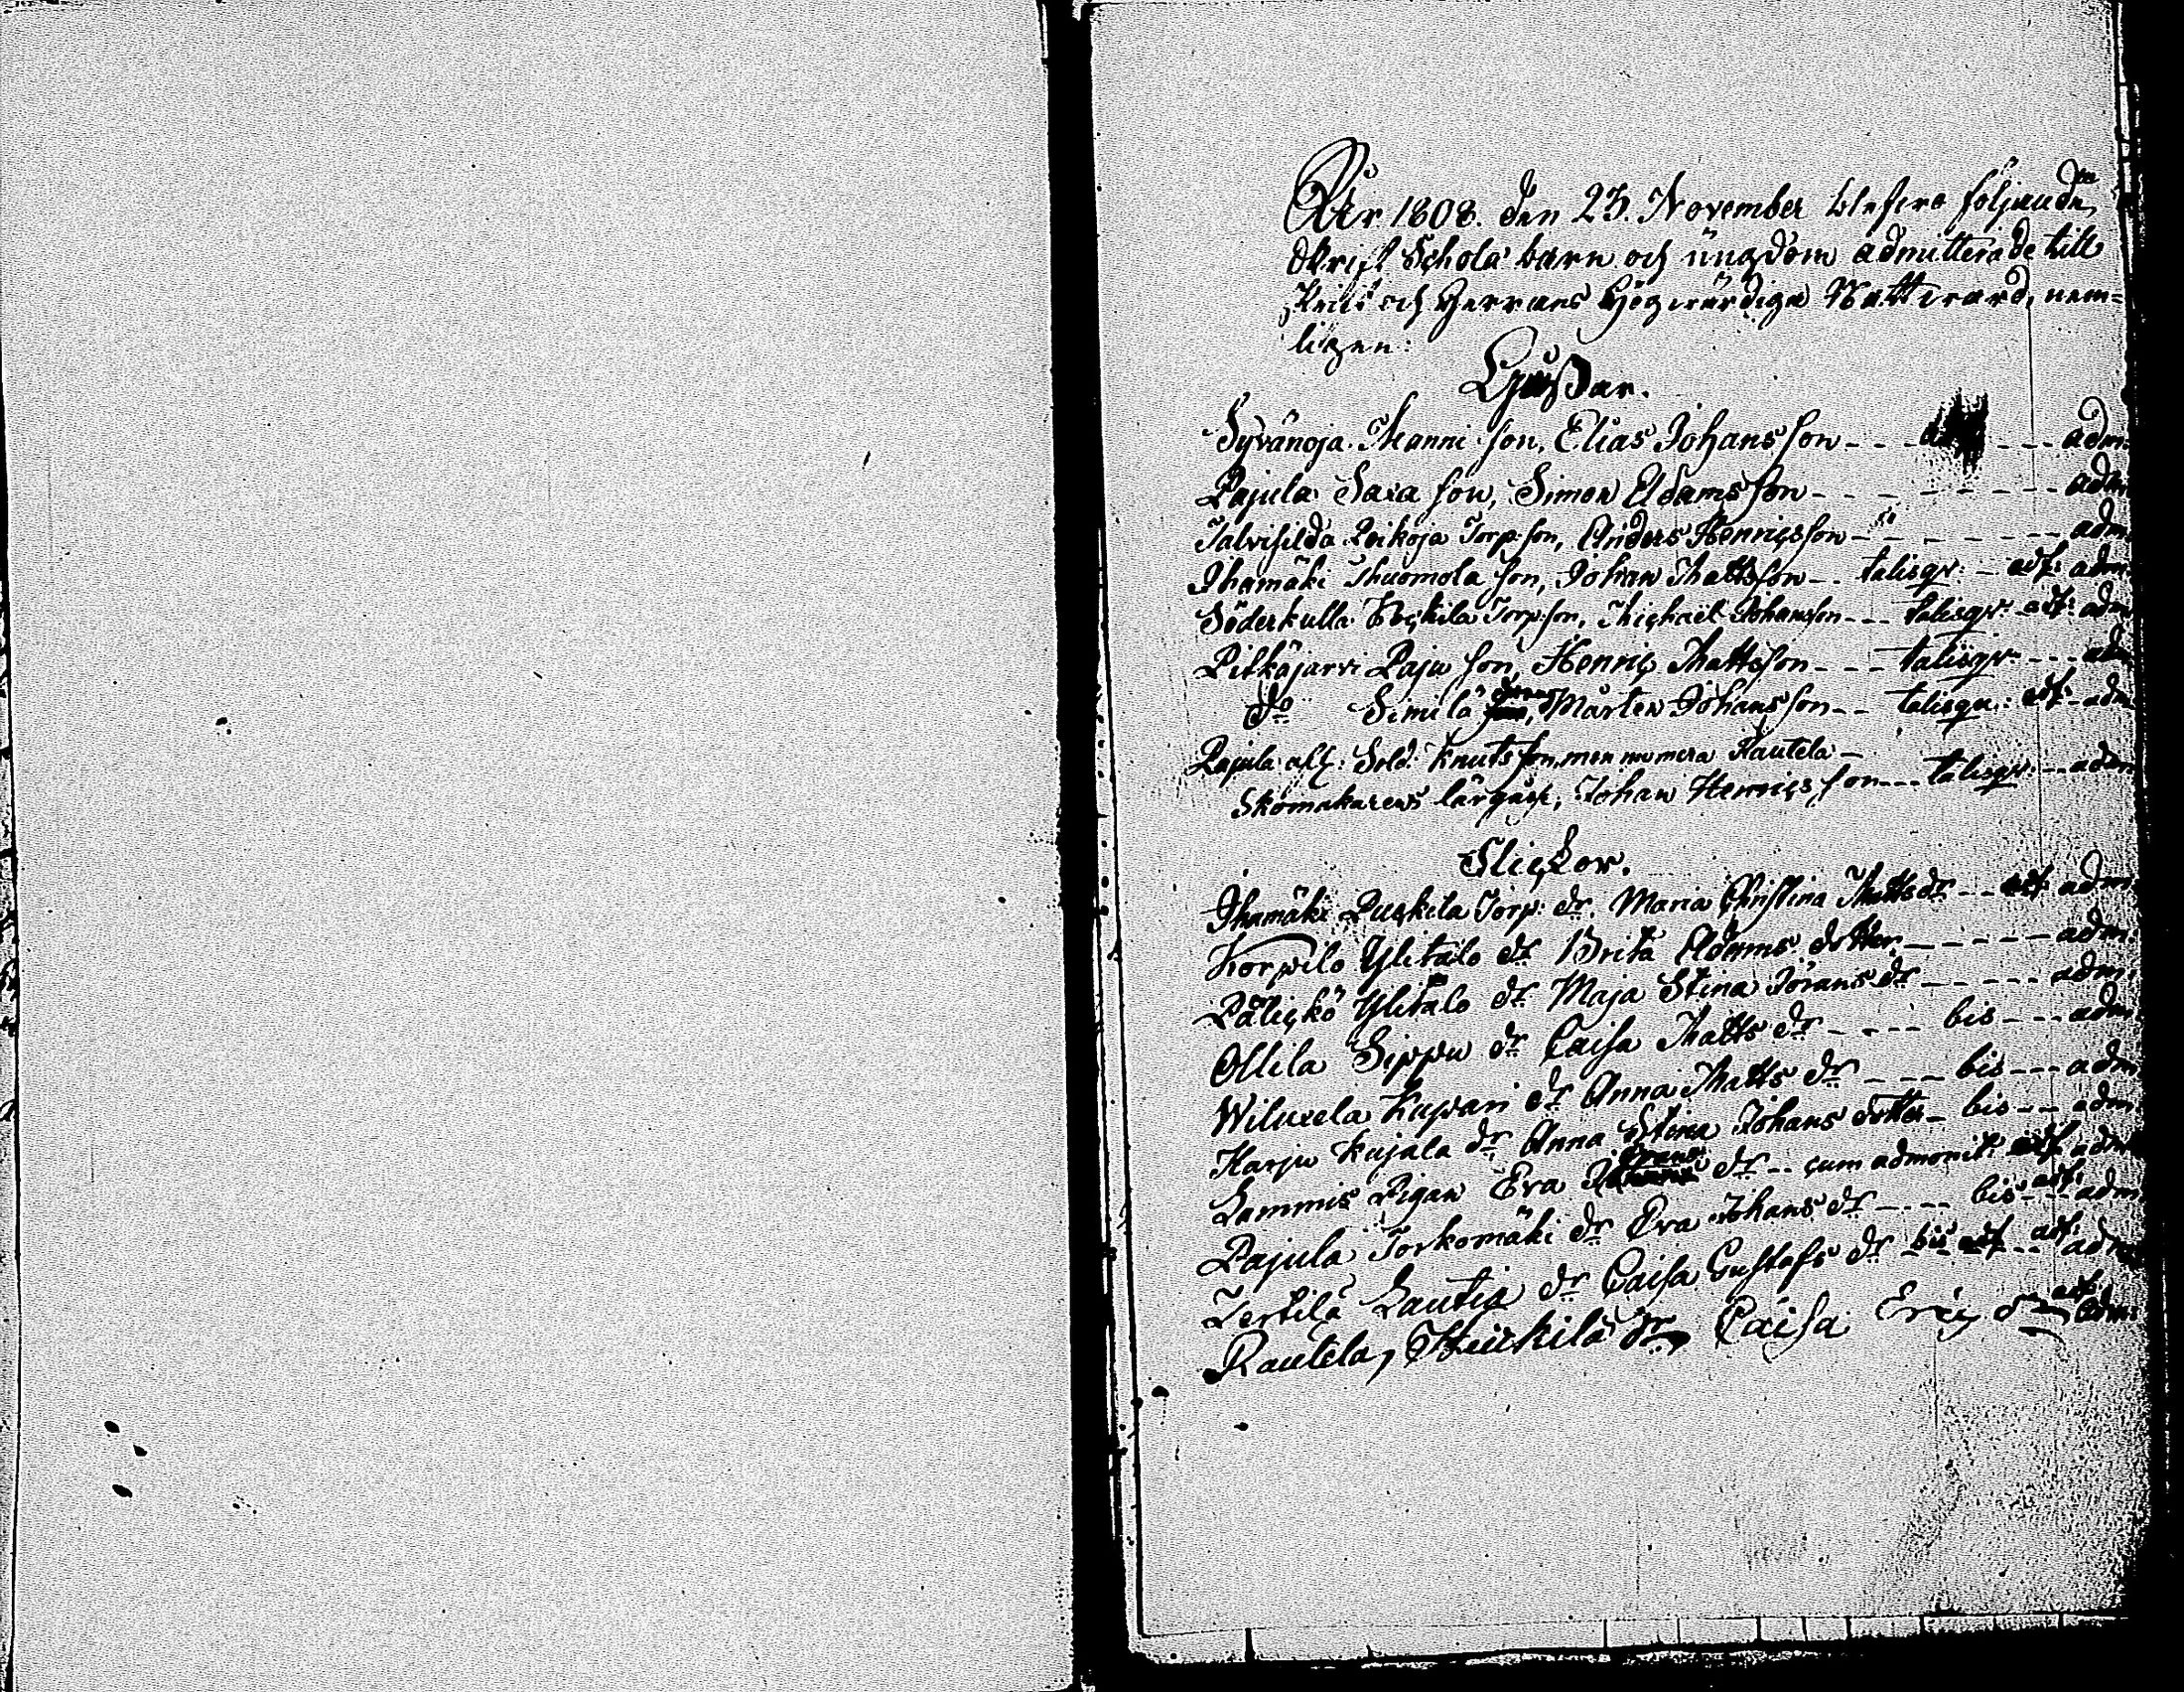 År 1808. den 23. November blefvo följande
Skrift Schola barn och ungdom admitterade till
Skrift och Herrans Högvärdiga Nattvard, nem-
ligen:
Gåssar.
Syvänoja Manni son, Elias Johansson --- adm:
Pajula Saxa son, Simon Adamsson --- adm:
Talvisilda Torp: son, Anders Henricsson --- adm:
Ihamäki son, Johan Mattsson -- talisqv: - adf: adm:
Söderkulla Torp: son, Michaël Johansson --- talisqv: - adf: adm:
Pitkäjärvi Paju son, Henric Mattsson --- talisqv: --- adm:
Do Simila Mårten Johansson -- talisqv: adf: adm:
Pajula Sold: Knuts son, men numera Rautela
Skomakarens lärgåsse, Johan Henricsson --- talisqv: -- adm:
Flickor.
Ihamäki Puckila Torp: dr. Maria Christina Matts dr -- adf: adm:
Korpilo Ylitalo dr Brita Adams dotter --- adm:
Päličkö Ylitalo dr Maja Stina Jörans dr --- adm:
Ollila Sippu dr Caisa Matts dr --- bis --- adm:
Kupari dr Anna Matts dr --- bis --- adm:
Harju Kujala dr Anna Stina Johans dotter - bis -- adm:
Lammis Pigan Eva dr -- cum admonit: adf: adm:
Pajula Torkomäki dr Eva Johans dr --- bis adf: adm:
Tertilä Lautia dr Caisa Gustafs dr bis adf: adm:
Rautela, Heickilä dr, Caisa Eric dr adf: adm: